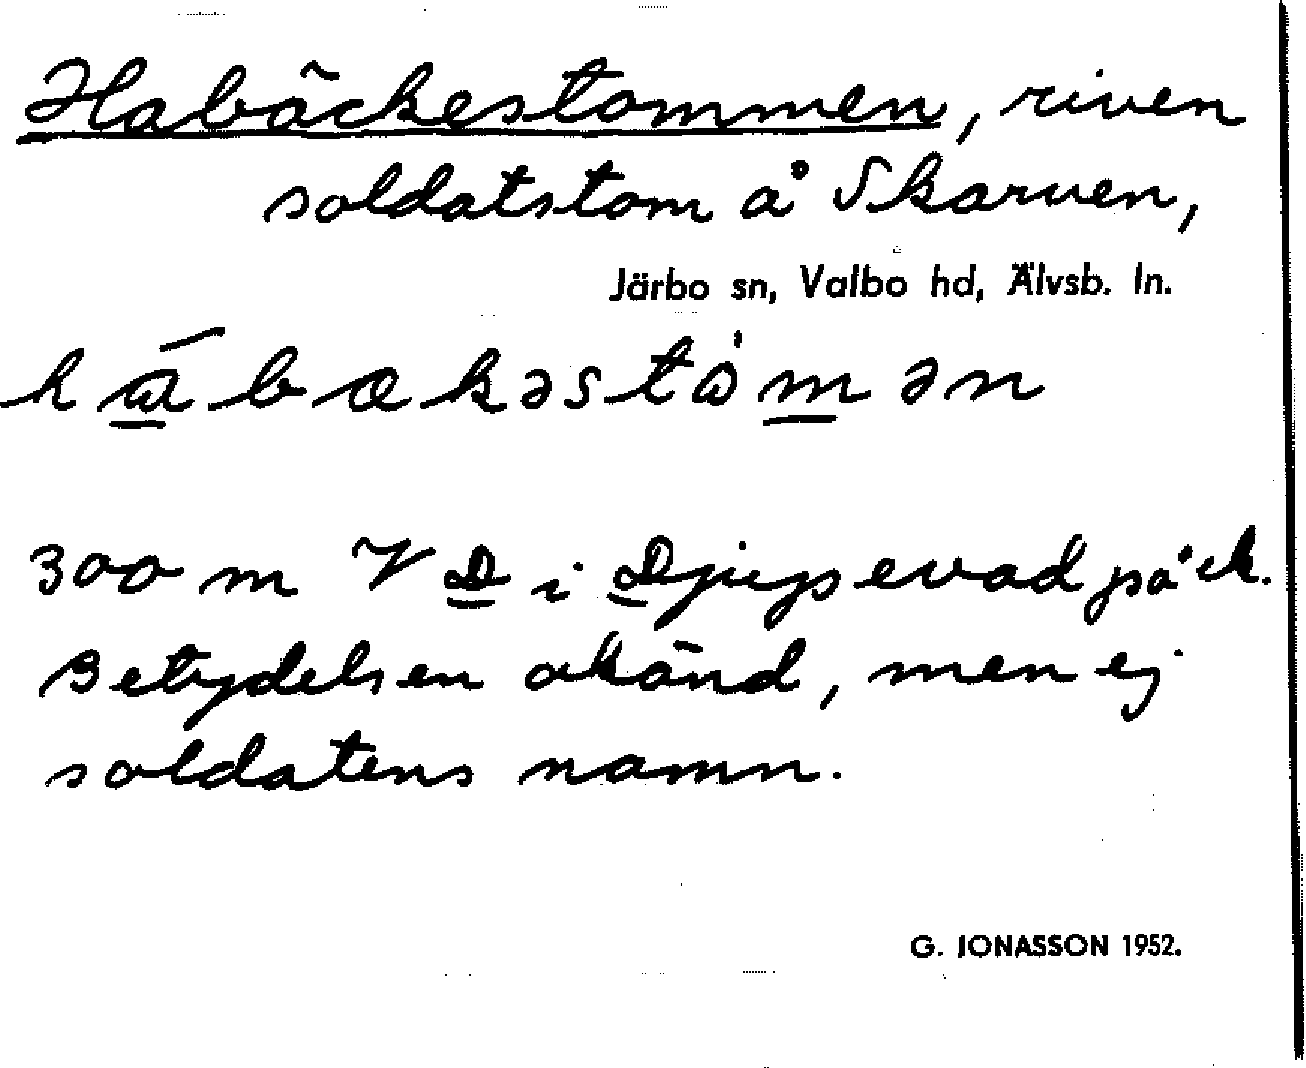 Habäckestommen, riven
soldatstom å Skarven,
Järbo sn, Valbo hd, Älvsb. ln.
hábækəståmən
300 m V D i Djupevad på ek.
Betydelsen okänd, men ej
soldatens namn.
G. JONASSON 1952.